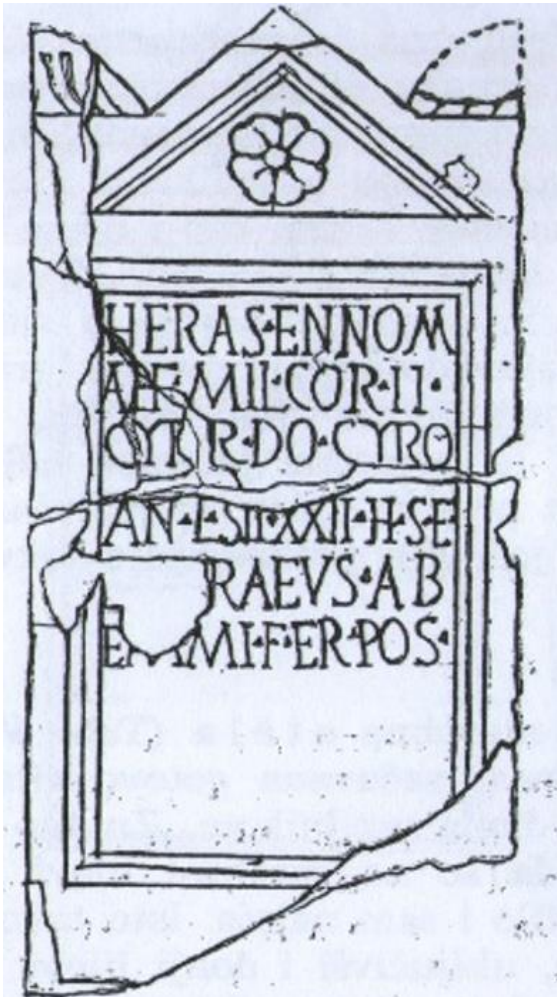 HERAS·ENNOM
AE·F·MIL·COR·II·
DO·CYRO
AN·L·STI·XXII·H·SE
RAEVS·AB
F·ER·POS·